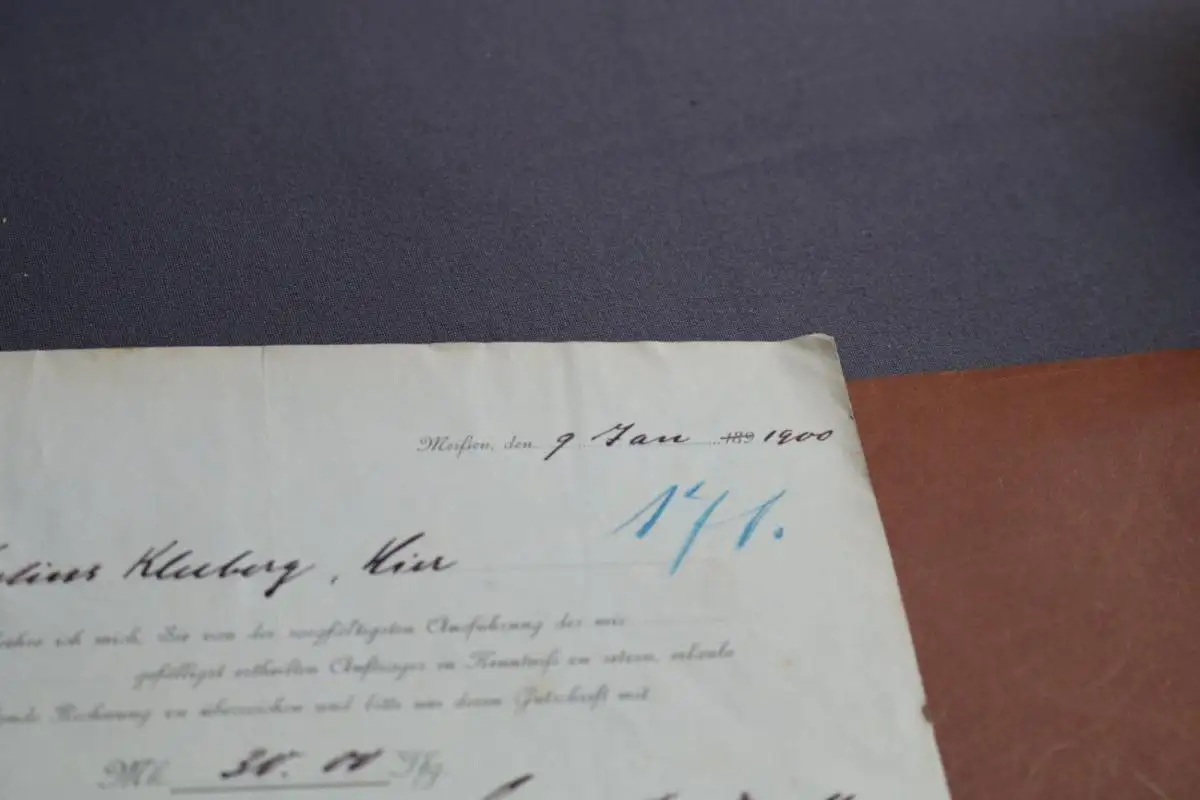 Meißen, den 9 Jan 189 1900
171.
Julius Kleeberg, Hier
ich mich, Sie von der sorgfältigsten Ausführung des mir
gefälligst ertheilten Auftrages in Kenntniß zu setzen, erlaube
Rechnung zu überreichen und bitte um deren Gutschrift mit
Mk. 30. 00 Pfg